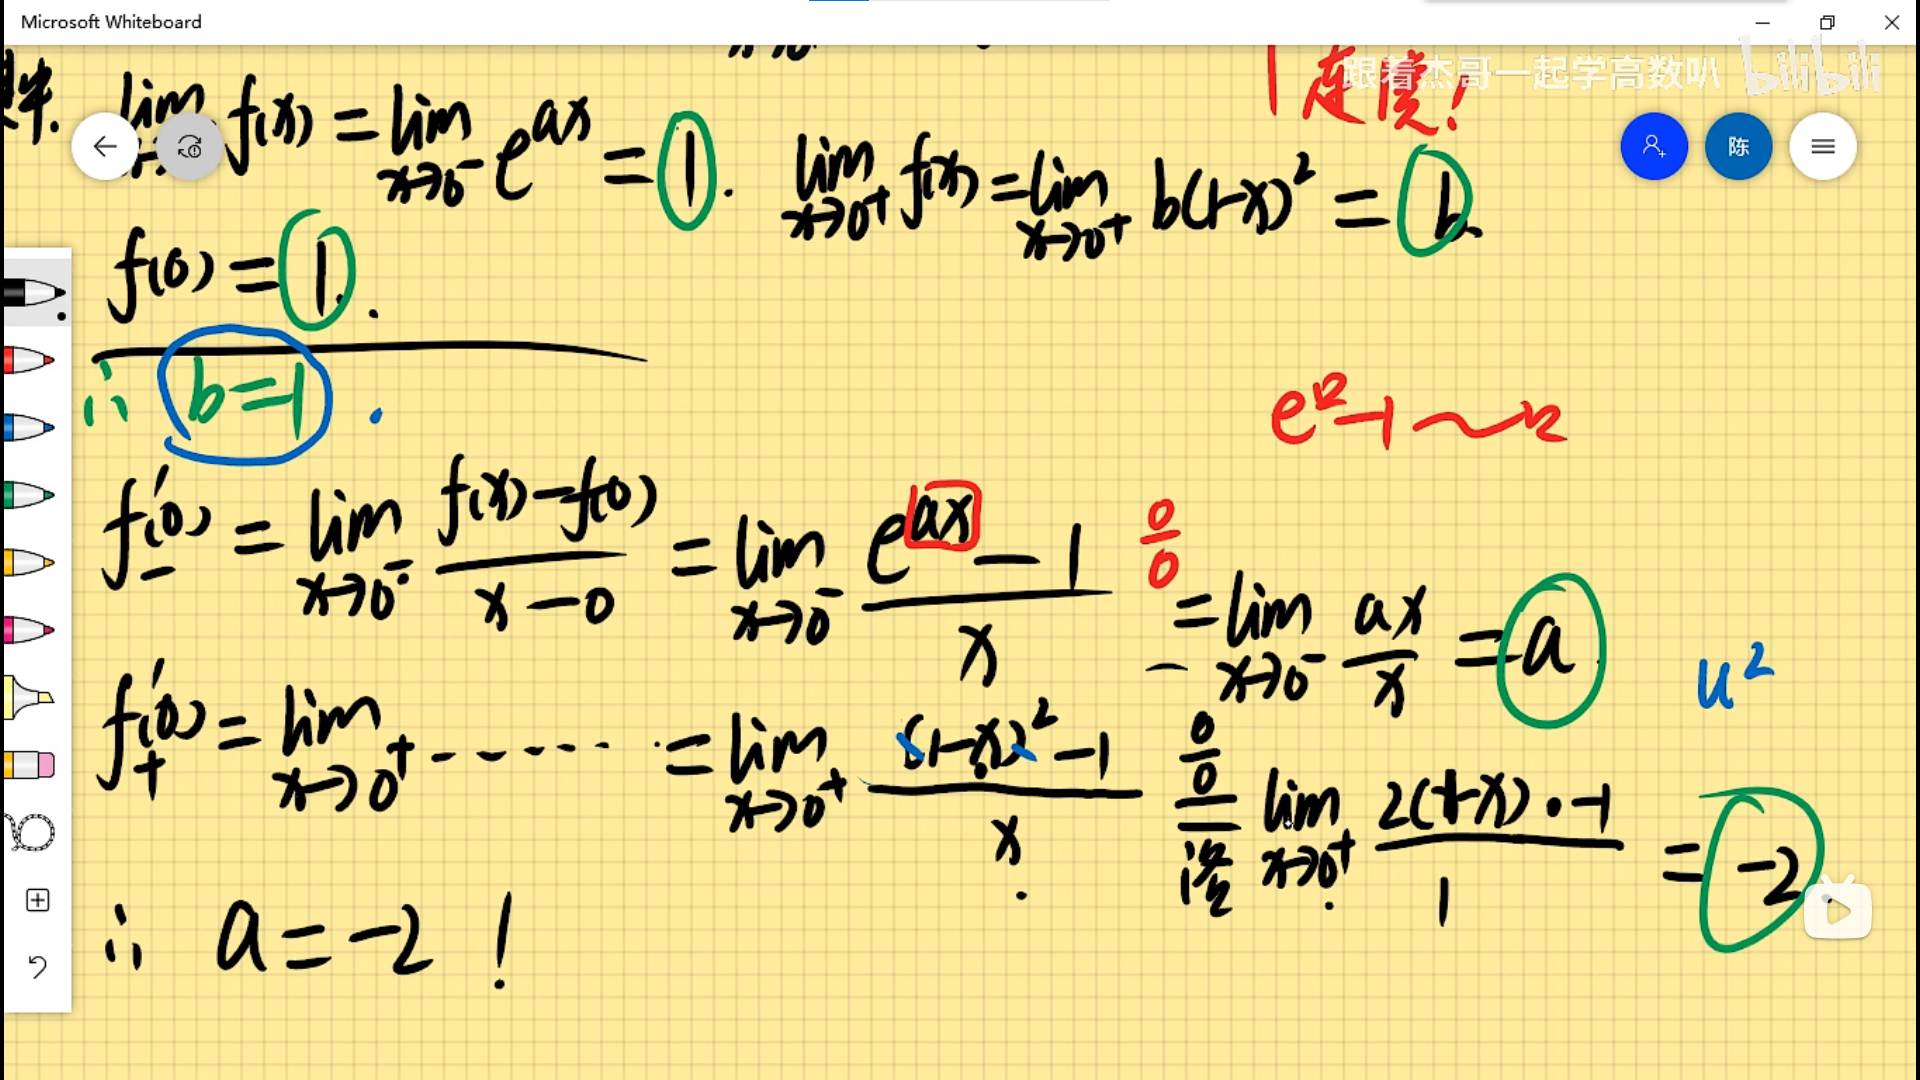 Microsoft Whiteboard
跟着杰哥一起学高数叭 bilibili
连续!
陈
lim f(x) = lim x→0⁻ e^{ax} = 1. lim x→0⁺ f(x) = lim x→0⁺ b(1-x)² = b.
f(0) = 1.
∴ b=1.
e^□-1~□
f'₋(0) = lim x→0⁻ (f(x)-f(0))/(x-0) = lim x→0⁻ (e^{ax}-1)/x 0/0 = lim x→0⁻ ax/x = a
u²
f'₊(0) = lim x→0⁺ ...... = lim x→0⁺ ((1-x)²-1)/x 0/0 = 洛 lim x→0⁺ 2(1-x)·-1/1 = -2.
∴ a=-2!